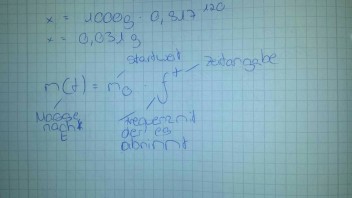 x = 1000g · 0,917¹²⁰
x = 0,031 g
startwert
Zeitangabe
m(t) = m₀ · f^t
Masse
nach
t
Frequenz mit
der es
abnimmt